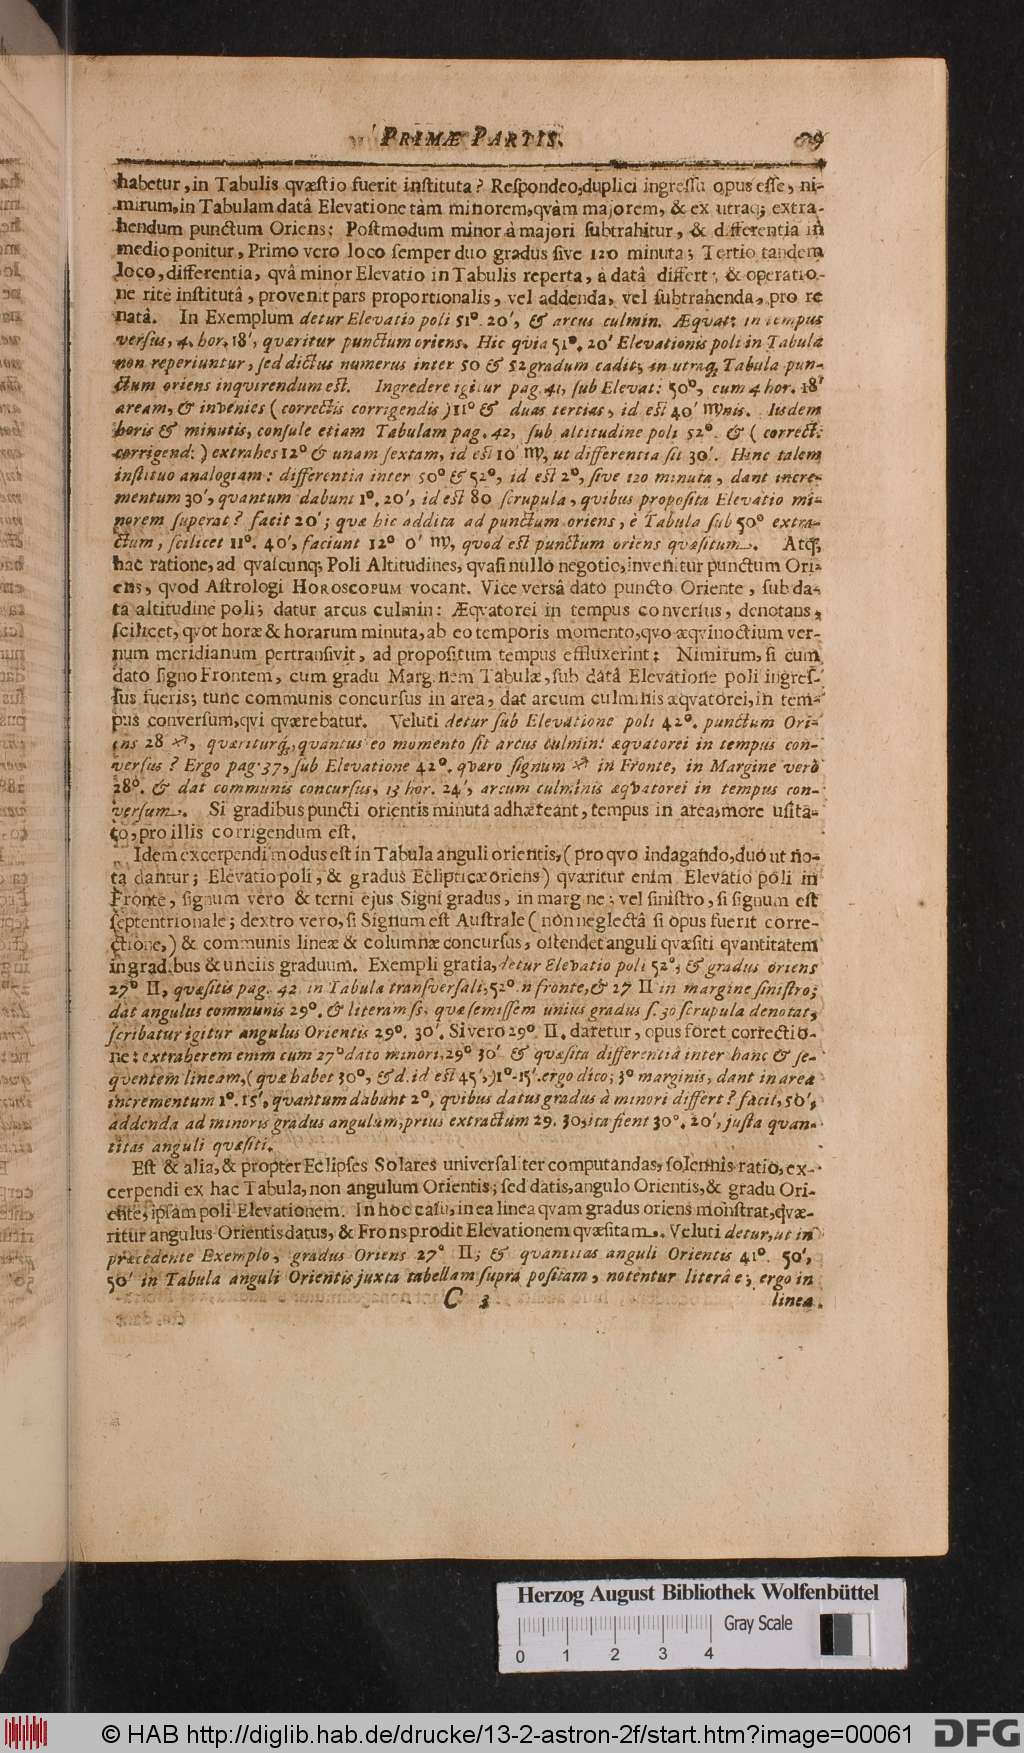 PRIMÆ PARTIS.
habetur, in Tabulis qvæſtio fuerit inſtituta? Reſpondeo, duplici ingreſſu opus eſſe, ni-
mirum, in Tabulam datâ Elevatione tàm minorem, qvàm majorem, & ex utraq; extra-
hendum punctum Oriens: Poſtmodum minor â majori ſubtrahitur, & differentia in
medio ponitur, Primo vero loco ſemper duo gradus ſive 120 minuta; Tertio tandem
loco, differentia, qvâ minor Elevatio in Tabulis reperta, â datâ differt; & operatio-
ne rite inſtitutâ, provenit pars proportionalis, vel addenda, vel ſubtrahenda, pro re
natâ. In Exemplum detur Elevatio poli 51°. 20′, & arcus culmin. Æquat: in tempus
verſus, 4. hor. 18′, quæritur punctum oriens. Hic qvia 51°. 20′ Elevationis poli in Tabula
non reperiuntur, ſed dictus numerus inter 50 & 52 gradum cadit; in utraq; Tabula pun-
ctum oriens inqvirendum eſt. Ingredere igitur pag. 41, ſub Elevat: 50°, cum 4 hor. 18′
aream, & invenies (correctis corrigendis) 11° & duas tertias, id eſt 40′ ♍nis. Iisdem
horis & minutis, conſule etiam Tabulam pag. 42, ſub altitudine poli 52°. & (correct:
corrigend:) extrahes 12° & unam ſextam, id eſt 10 ♍, ut differentia ſit 30′. Hinc talem
inſtituo analogiam: differentia inter 50° & 52°, id eſt 2°, ſive 120 minuta, dant incre-
mentum 30′, quantum dabunt 1°. 20′, id eſt 80 ſcrupula, qvibus propoſita Elevatio mi-
norem ſuperat? facit 20′; quæ hic addita ad punctum oriens, è Tabula ſub 50° extra-
ctum, ſcilicet 11°. 40′, faciunt 12° 0′ ♍, quod eſt punctum oriens quæſitum. Atq;
hac ratione, ad qvaſcunq; Poli Altitudines, qvaſi nullo negotio, invenitur punctum Ori-
ens, qvod Aſtrologi HOROSCOPUM vocant. Vice versâ dato puncto Oriente, ſub da-
tâ altitudine poli; datur arcus culmin: Æqvatorei in tempus converſus, denotans,
ſcilicet, qvot horæ & horarum minuta, ab eo temporis momento, qvo æqvinoctium ver-
num meridianum pertranſivit, ad propoſitum tempus effluxerint: Nimirum, ſi cum
dato ſigno Frontem, cum gradu Marginem Tabulæ, ſub datâ Elevatione poli ingreſ-
ſus fueris; tunc communis concurſus in area, dat arcum culminis æqvatorei, in tem-
pus converſum, qvi qværebatur. Veluti detur ſub Elevatione poli 42°. punctum Ori-
ens 28 ♐, quæriturq;, quantus eo momento ſit arcus culmin: æquatorei in tempus con-
verſus? Ergo pag. 37, ſub Elevatione 42°. qværo ſignum ♐ in Fronte, in Margine verò
28°. & dat communis concurſus, 13 hor. 24′, arcum culminis æqvatorei in tempus con-
verſum. Si gradibus puncti orientis minuta adhæreant, tempus in area, more uſita-
to, pro illis corrigendum eſt.
Idem excerpendi modus eſt in Tabula anguli orientis, (pro qvo indagando, duo ut no-
ta dantur; Elevatio poli, & gradus Eclipticæ oriens) qværitur enim Elevatio poli in
Fronte, ſignum vero & terni ejus Signi gradus, in margine; vel ſiniſtro, ſi ſignum eſt
ſeptentrionale; dextro vero, ſi Signum eſt Auſtrale (non neglectâ ſi opus fuerit corre-
ctione,) & communis lineæ & columnæ concurſus, oſtendet anguli qvæſiti qvantitatem
in gradibus & unciis graduum. Exempli gratia, detur Elevatio poli 52°, & gradus oriens
27° ♊, quæſitis pag. 42 in Tabula tranſverſali, 52° in fronte, & 27 ♊ in margine ſiniſtro;
dat angulus communis 29°. & literam ſſ. quæ ſemiſſem unius gradus ſ. 30 ſcrupula denotat,
ſcribatur igitur angulus Orientis 29°. 30′. Si vero 29° ♊. daretur, opus foret correctio-
ne: extraherem enim cum 27° dato minori, 29° 30′ & quæſita differentiâ inter hanc & ſe-
qventem lineam, (quæ habet 30°, & d. id eſt 45′,) 1°. 15′. ergo dico; 3° marginis, dant in area
incrementum 1°. 15′, quantum dabunt 2°, quibus datus gradus à minori differt? facit, 50′,
addenda ad minoris gradus angulum, prius extractum 29. 30, ita fient 30°. 20′, juſta quan-
titas anguli quæſiti.
Eſt & alia, & propter Eclipſes Solares univerſaliter computandas, ſolennis ratio, ex-
cerpendi ex hac Tabula, non angulum Orientis; ſed datis, angulo Orientis, & gradu Ori-
ente, ipſam poli Elevationem. In hoc caſu, in ea linea qvam gradus oriens monſtrat, qvæ-
ritur angulus Orientis datus, & Frons prodit Elevationem qvæſitam. Veluti detur, ut in
præcedente Exemplo, gradus Oriens 27° ♊; & quantitas anguli Orientis 41°. 50′,
50′ in Tabula anguli Orientis juxta tabellam ſupra poſitam, notentur literâ e; ergo in
C 3 linea.
Herzog August Bibliothek Wolfenbüttel
Gray Scale
0 1 2 3 4
© HAB http://diglib.hab.de/drucke/13-2-astron-2f/start.htm?image=00061 DFG